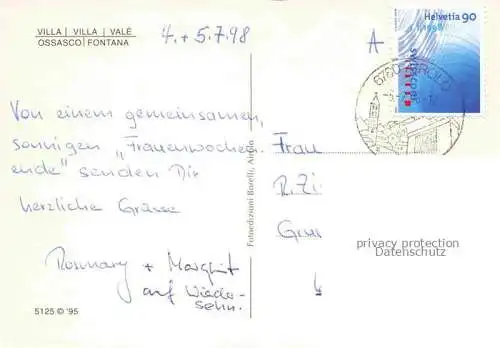 VILLA | VILLA | VALÉ
OSSASCO | FONTANA
4. + 5.7.98
A
Helvetia 90
1998
swisscom
6780 AIROLO
Von einem gemeinsamen,
sonnigen „Frauenwochen-
ende" senden Dir
herzliche Grüsse
Rosmary + Margrit
auf Wieder-
sehn.
Fotoedizioni Borelli, Airolo
Frau
R. Zi
Grü
privacy protection
Datenschutz
5125 © '95